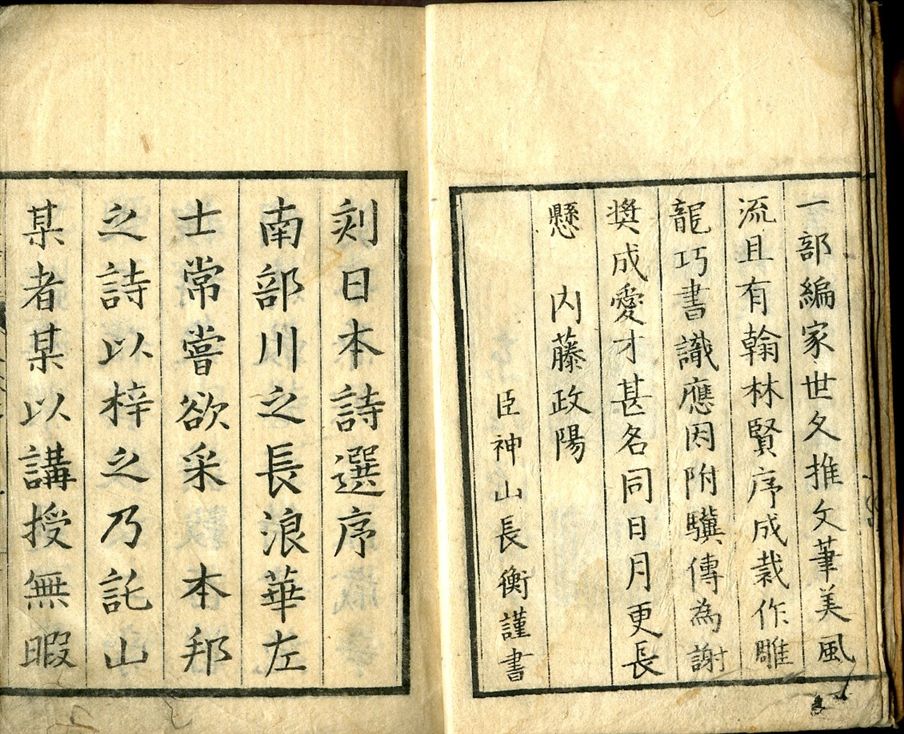 一部編家世久推文筆美風
流且有翰林賢序成裁作雕
龍巧書識應因附驥傳為謝
奬成愛才甚名同日月更長
懸　內藤政陽
臣神山長衡謹書
刻日本詩選序
南部川之長浪華左
士常嘗欲采本邦
之詩以梓之乃託山
某者某以講授無暇